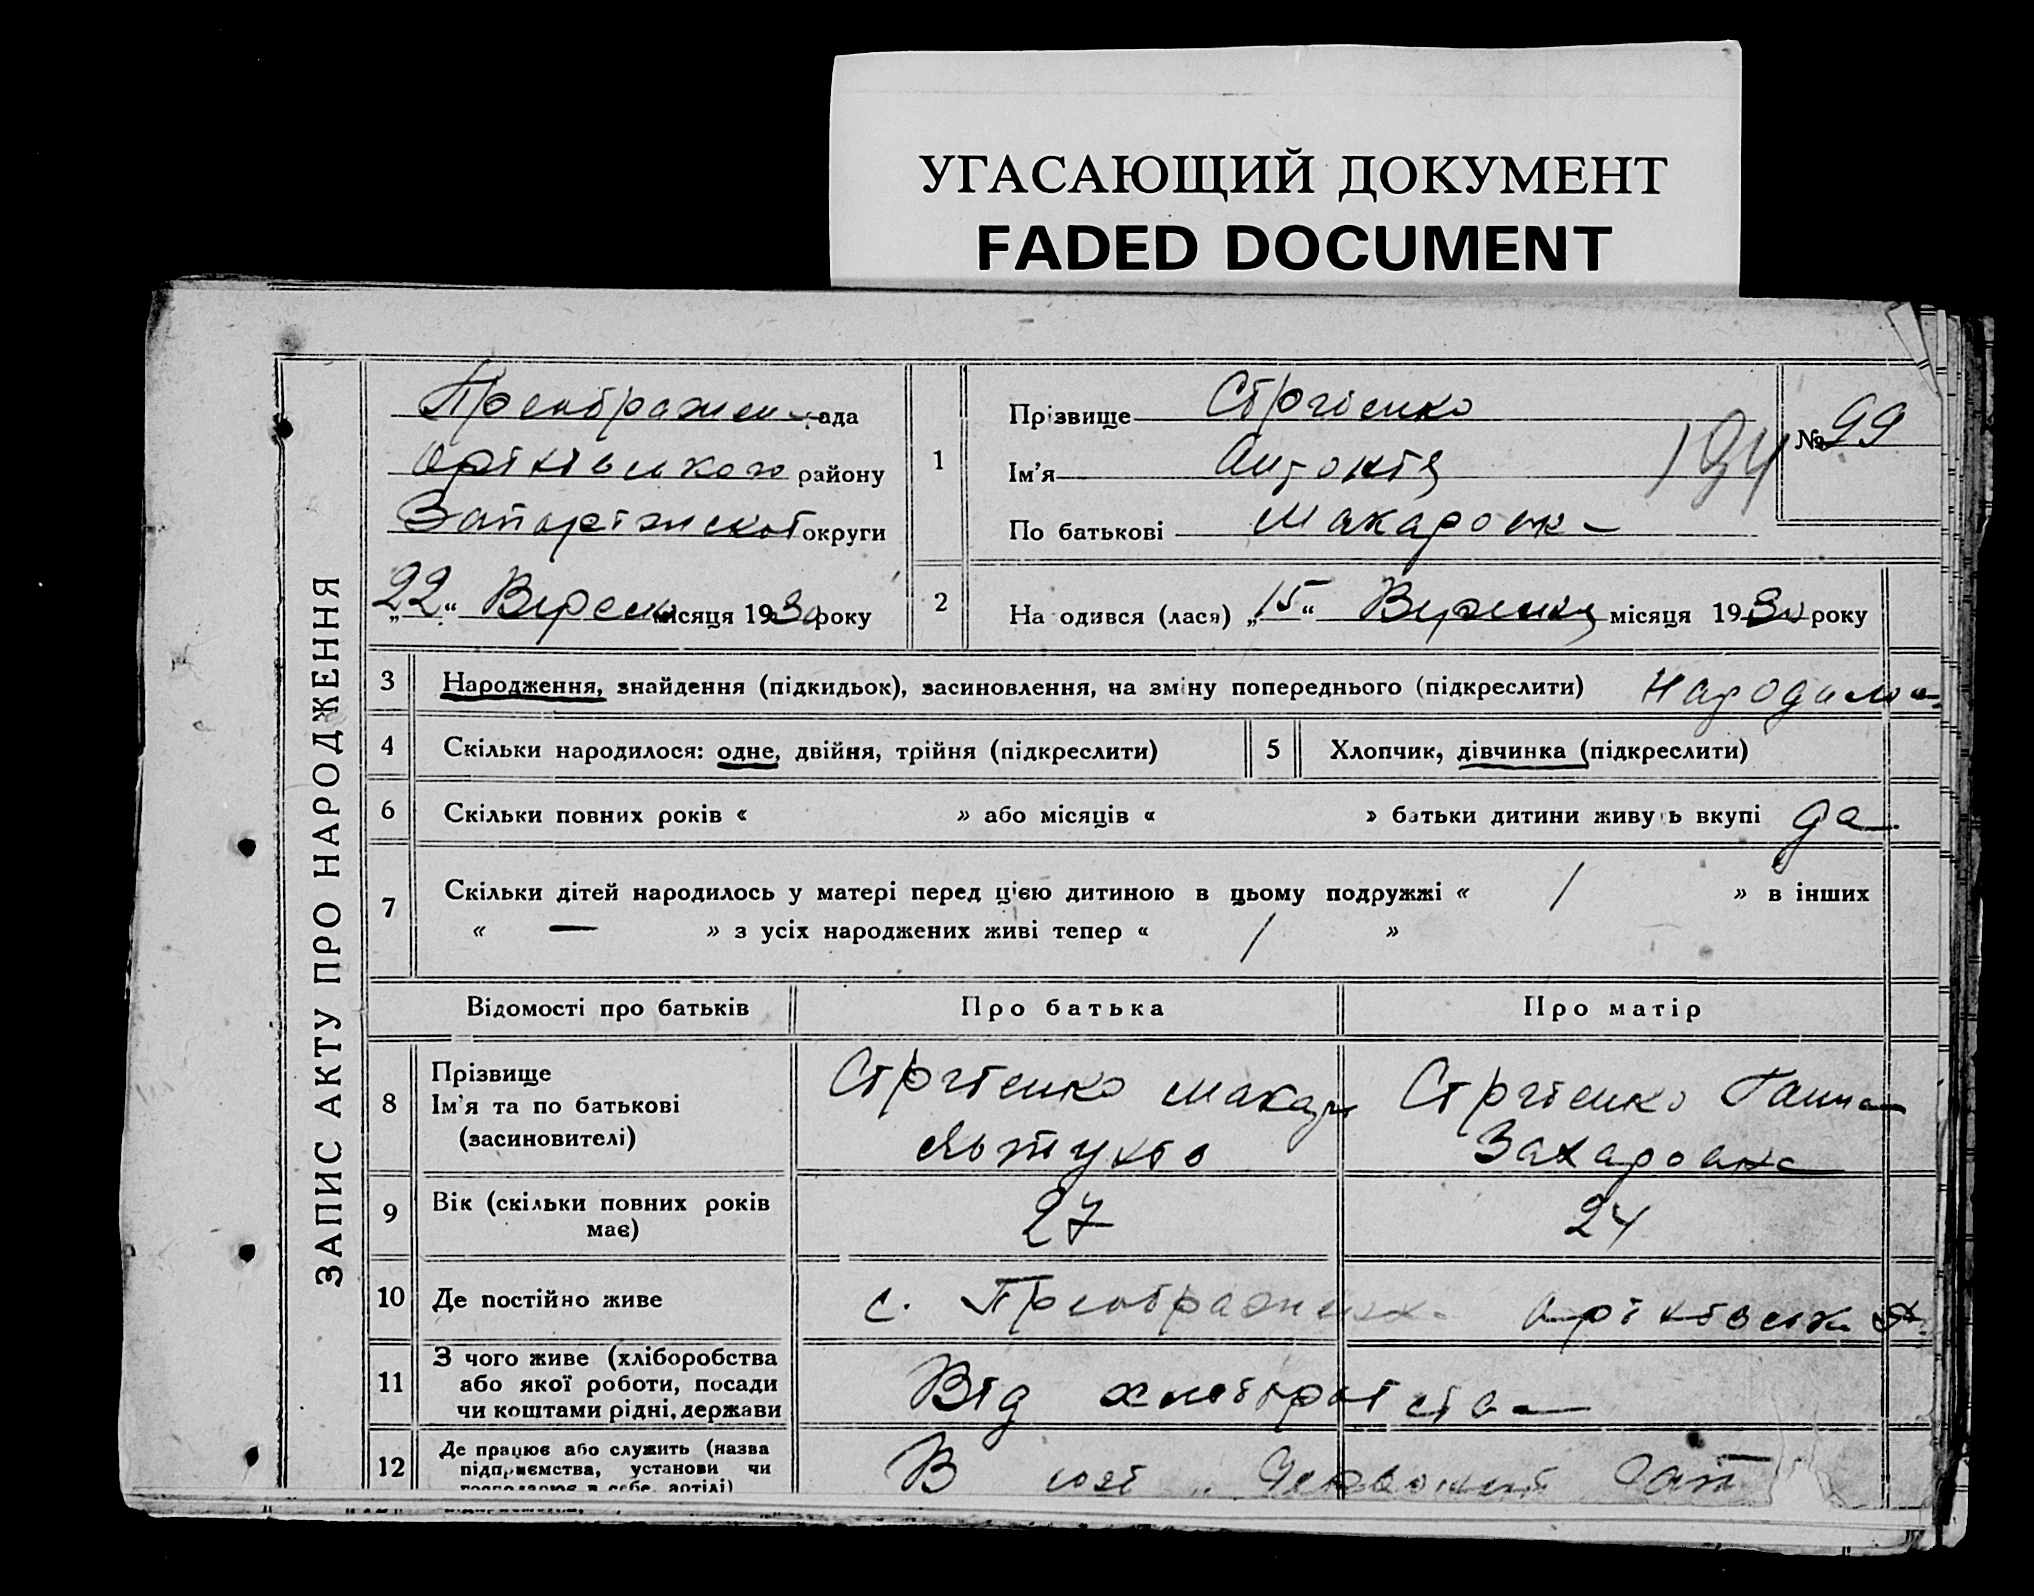 УГАСАЮЩИЙ ДОКУМЕНТ
FADED DOCUMENT
ЗАПИС АКТУ ПРО НАРОДЖЕННЯ
Преображен ада
Оріхівського району
Запоріжської округи
„22“ Вересн місяця 1930 року
1
Прізвище Сергієнко
Ім'я Антонія
По батькові Макаровн
№ 99
194
2
На одився (лася) „15“ Вересня місяця 1930 року
3 Народження, знайдення (підкидьок), засиновлення, на зміну попереднього (підкреслити)
4 Скільки народилося: одне, двійня, трійня (підкреслити)
5 Хлопчик, дівчинка (підкреслити)
6 Скільки повних років « » або місяців « » батьки дитини живу ь вкупі да
7 Скільки дітей народилось у матері перед цією дитиною в цьому подружжі « 1 » в інших
« — » з усіх народжених живі тепер « 1 »
Відомості про батьків Про батька Про матір
8 Прізвище
Ім'я та по батькові
(засновителі)
Сергіенко Макар
Сергіенко Ганна
Захаровна
9 Вік (скільки повних років
має)
27 24
10 Де постійно живе
с. Преображенк Оріхівськ
11 З чого живе (хліборобства
або якої роботи, посади
чи коштами рідні, держави
Від
12 Де працює або служить (назва
підприємства, установи чи
господарює в себе, артілі)
В Червоний